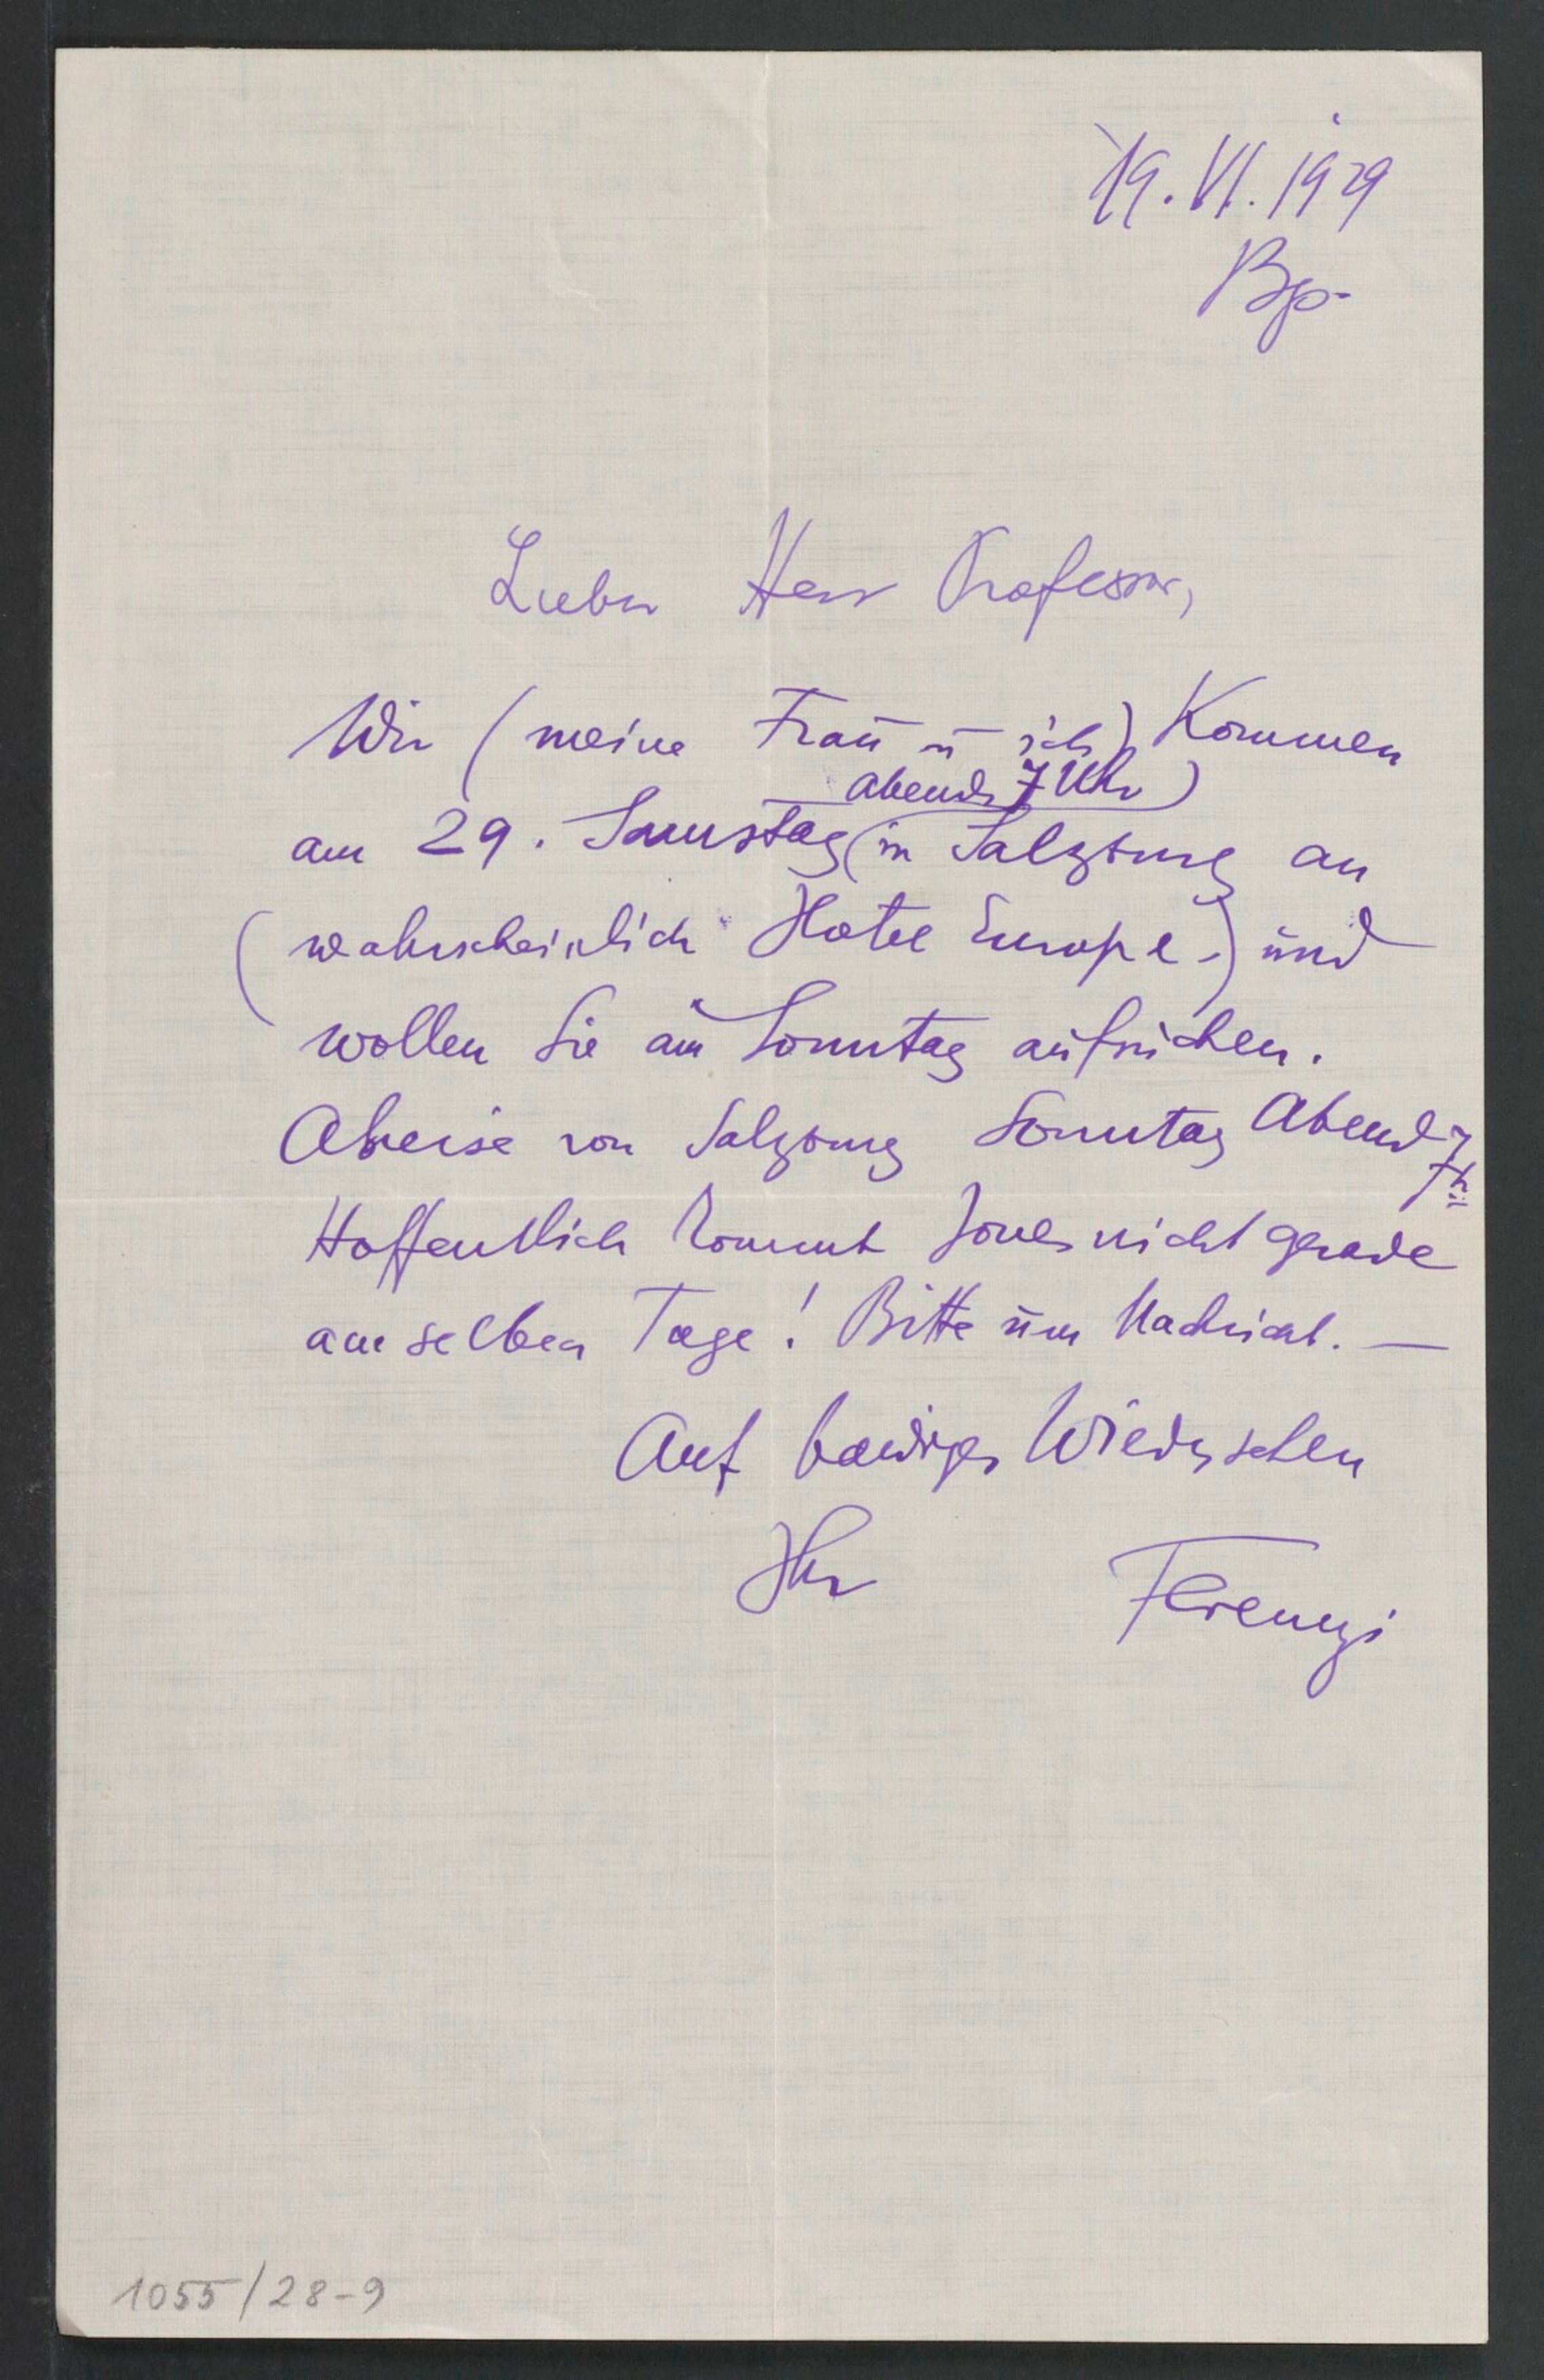 19. VI. 1929
Bp.
Lieber Herr Professor,
Wir (meine Frau u ich) kommen
abends 7 Uhr)
am 29. Samstag (in Salzburg an
(wahrscheinlich Hotel Europe.) und
wollen Sie am Sonntag aufsuchen.
Abreise von Salzburg Sonntag Abend 7h
Hoffentlich kommt Jones nicht gerade
am selben Tage! Bitte um Nachricht. —
Auf baldiges Wiedersehen
Ihr Ferenczi
1055/28-9